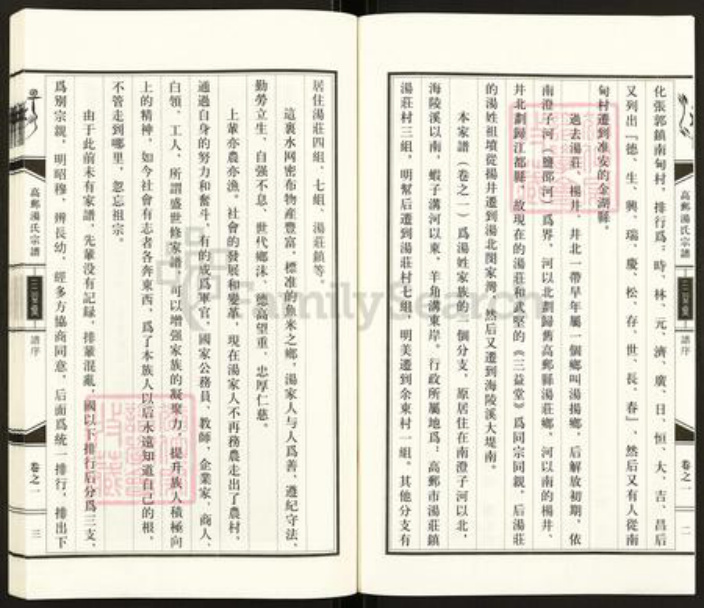 化張郭鎮南甸村，排行爲：時、林、元、濟、廣、日、恒、大、吉、昌后
又列出「德、生、興、瑞、慶、松、存、世、長、春」，然后又有人從南
甸村遷到淮安的金湖縣。
過去湯莊、楊井、井北一帶早年屬一個鄉叫湯揚鄉，后解放初期，依
南澄子河（鹽邵河）爲界，河以北劃歸舊高郵縣湯莊鄉，河以南的楊井、
井北劃歸江都縣，故現在的湯莊和武堅的《三益堂》爲同宗同親，后湯莊
的湯姓祖墳從揚井遷到湯北閔家灣，然后又遷到海陵溪大堤南。
本家譜（卷之一）爲湯姓家族的一個分支，原居住在南澄子河以北，
海陵溪以南，蝦子溝河以東，羊角溝東岸。行政所屬地爲：高郵市湯莊鎮
湯莊村三組，明幫后遷到湯莊村七組，明美遷到余東村一組。其他分支有
高郵湯氏宗譜
三益堂
譜序
卷之一
二
居住湯莊四組、七組、湯莊鎮等。
這裏水网密布物產豐富，標准的魚米之鄉，湯家人与人爲善，遵紀守法、
勤勞立生、自强不息、世代鄉沫、德高望重，忠厚仁慈。
上輩亦農亦漁。社會的發展和變革，現在湯家人不再務農走出了農村，
通過自身的努力和奮斗，有的成爲軍官、國家公務員、教師、企業家、商人、
白領、工人，所謂盛世修家譜，可以增强家族的凝聚力，提升族人積極向
上的精神，如今社會有志者各奔東西，爲了本族人以后永遠知道自己的根，
不管走到哪里，忽忘祖宗。
由于此前未有家譜，先輩没有記録，排輩混亂，國以下排行后分爲三支，
爲别宗親，明昭穆，辨長幼，經多方協商同意，后面爲統一排行，排出下
高郵湯氏宗譜
三益堂
譜序
卷之一
三
FamilySearch